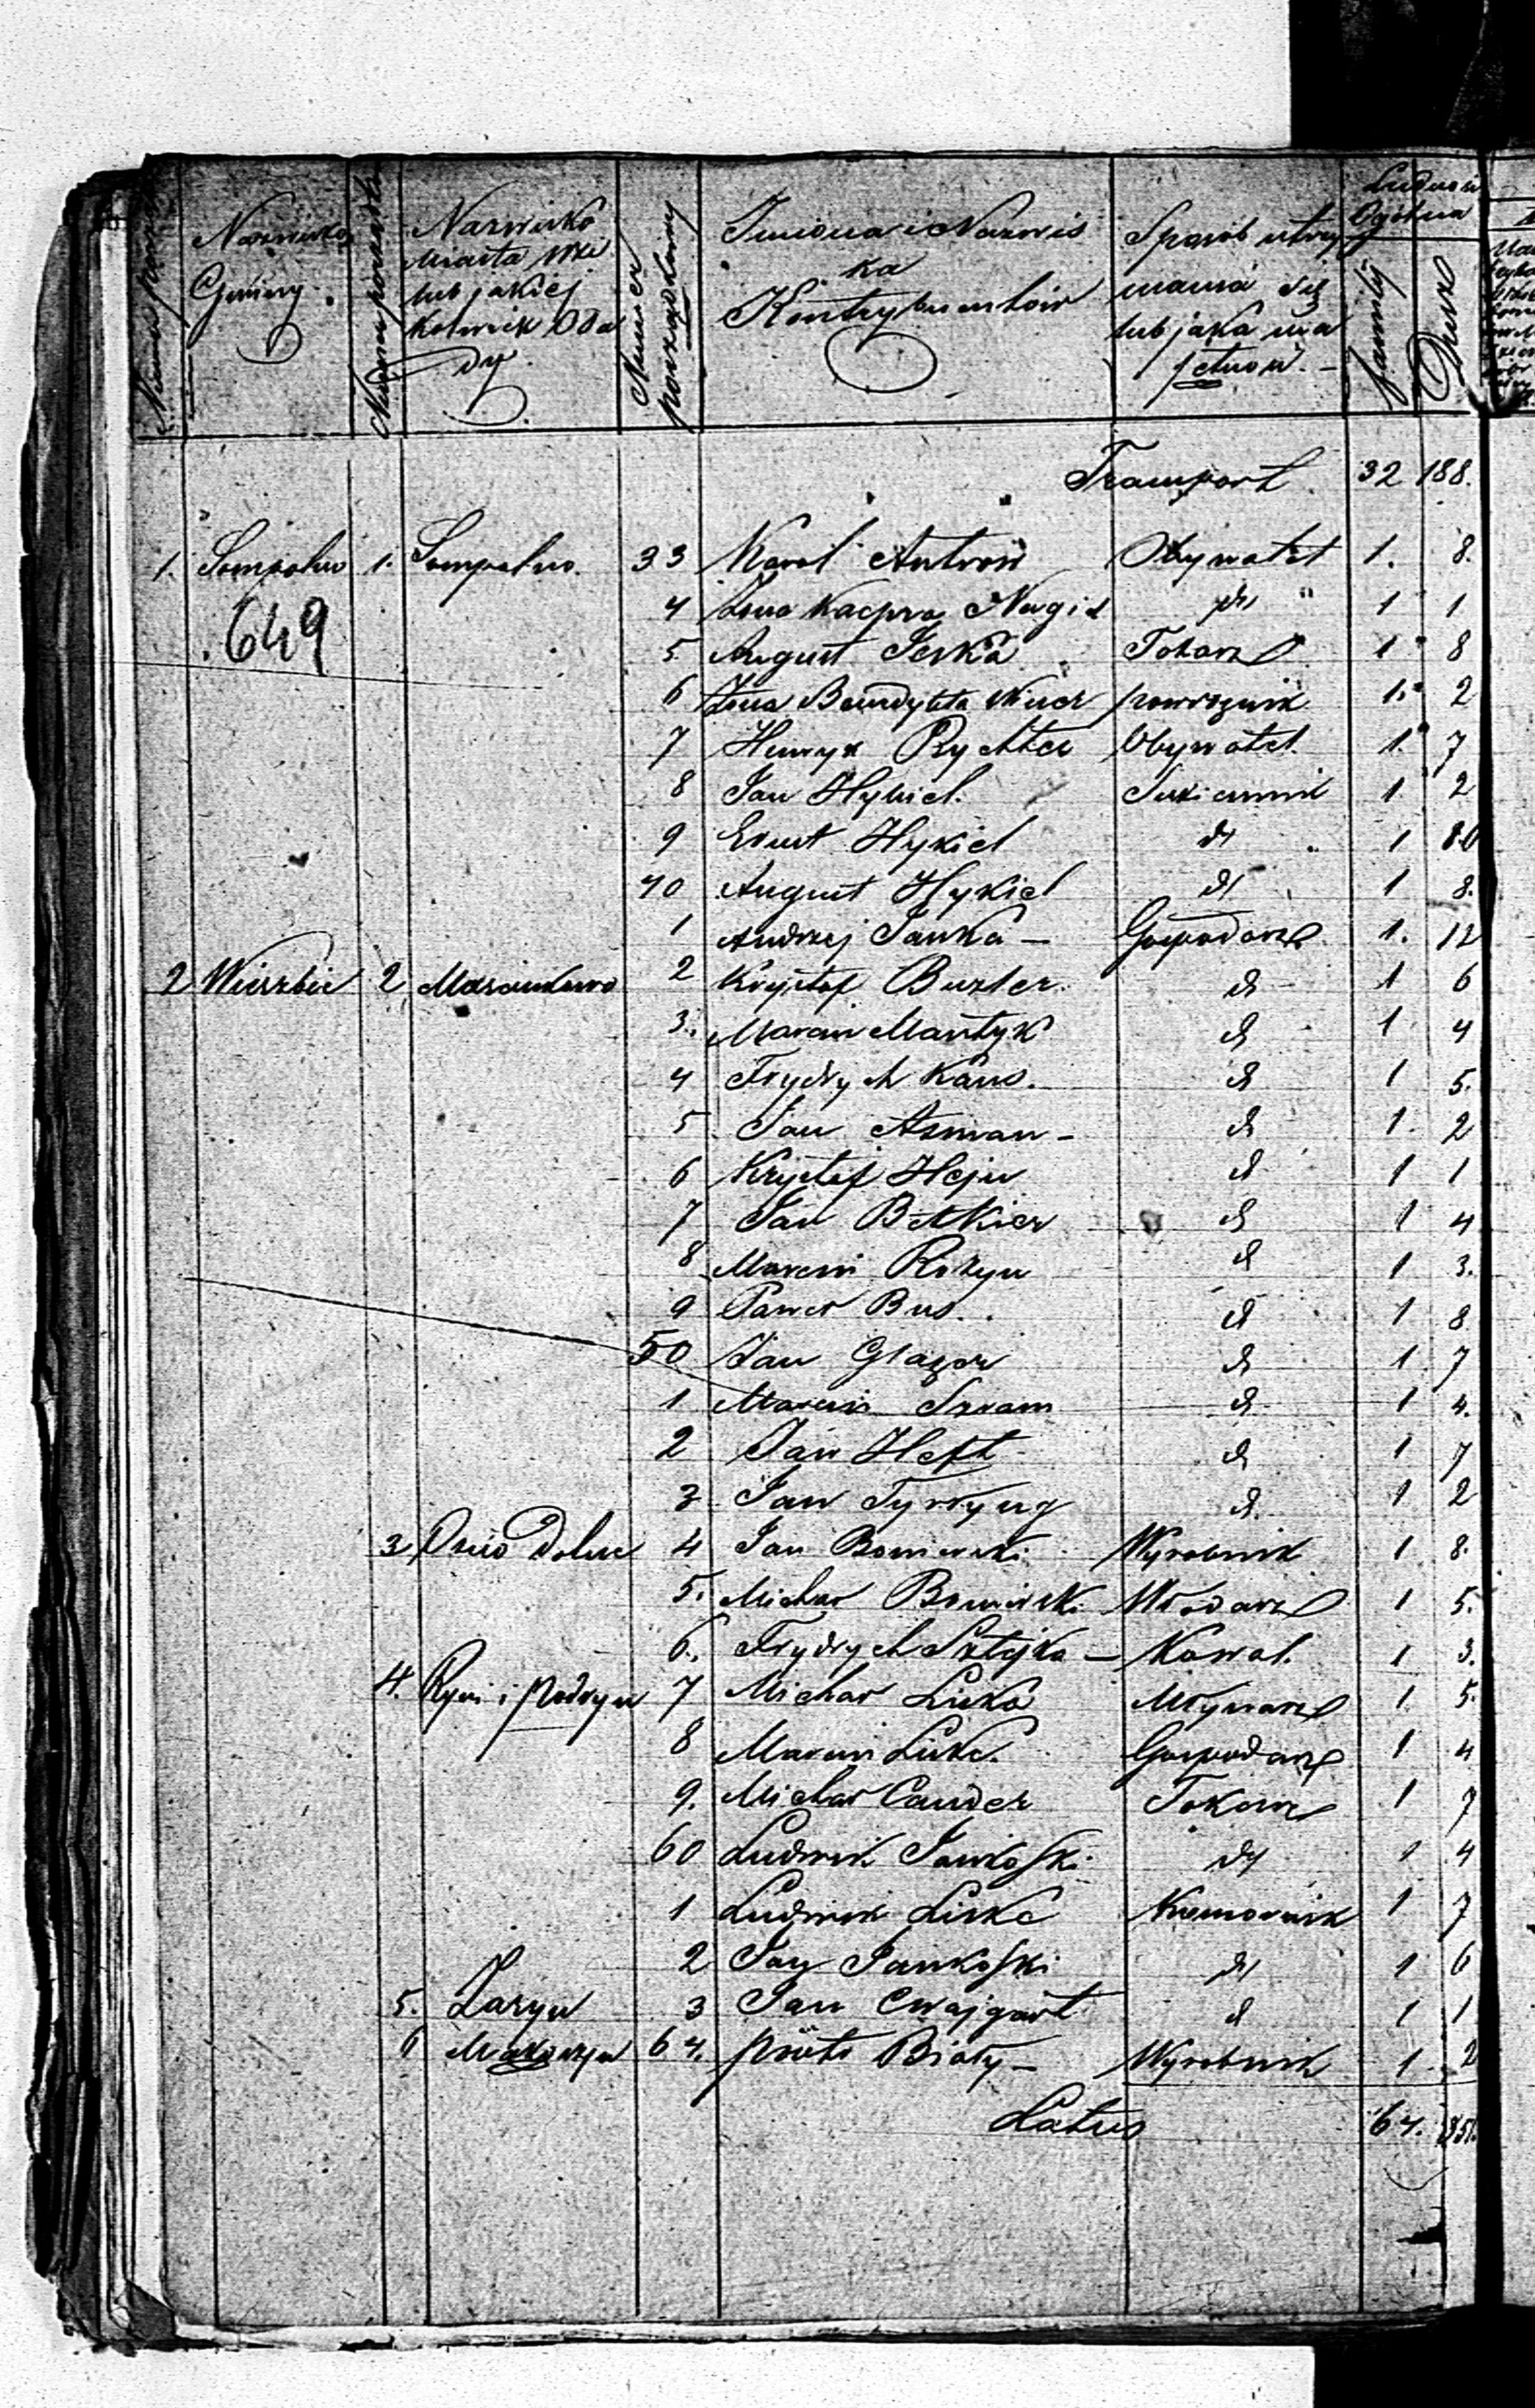 Nazwisko Gminy
Nazwisko Miasta wsi lub jakiej kolwiek Osady.
Numer porządkowy
Imiona i Nazwiska Kontrybuentów
Sposób utrzymania się lub jaka ma
Ludność Ogólna
Familij
Dusz
Transport 32 188.
1. Sompolno 1. Sompolno. 33 Karol Antron Obywatel 1. 8.
649
4 Żona Kacpra Nagiel dto 1 1
5. August Jeska Tokarz 1 8
6 Żona Benedykta Winer powroznik 1. 2
7 Henryk Rychter Obywatel 1. 7
8 Jan Hykiel. Sukiennik 1 2
9 Ernst Hykiel dt 1 8
40 August Hykiel dt 1 8.
1 Andrzej Janka – Gospodarz 1. 12
2 Wierzbie 2 2 Krysztof Buzler. d 1 6
3. Marcin Mantyk d 1. 4
4 Frydrych Kaus. d 1 5.
5 Jan Asman – d 1. 2
6 Krysztof Hejn d 1 1
7 Jan Betkier d 1 4
8 Marcin Rozyn d 1 3.
9 Paweł Bus. d 1 8
50 Jan Glazer d 1. 7
1 Marcin Szram d 1 4.
2 Jan Heft d 1 7
3 Jan Tyrryng d 1 2
3 Dolne 4 Jan Boniewski Wyrobnik 1 8.
5. Michał Boniewski Włodarz 1 5.
6. Frydrych Sztejka – Kowal. 1 3.
4. Ryn i podryn 7 Michał Liska Młynarz 1. 5.
8 Marcin Liske. Gospodarz 1 4
9. Michał Cander Tokarz 1 7
60 Ludwik Jankoski dt 1 4
1 Ludwik Liske Komornik 1 7
2 Jan Jankoski dt 1 6
5. Zaryn 3 Jan Cwajgart d 1 1
6 64. Biały – Wyrobnik 1. 2
Latus 64. 351.